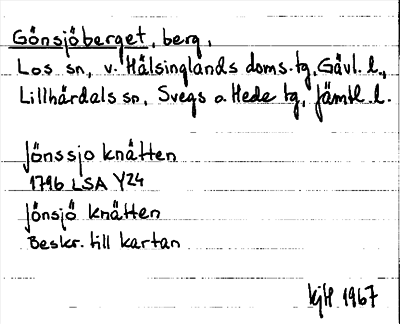 Gönsjöberget, berg,
Los sn, v. Hälsinglands doms.tg, Gävl. l.,
Lillhärdals sn, Svegs o. Hede tg, Jämtl. l.
Jönssjo knätten
1796 LSA Y24
Jönsjö knätten
Beskr. till kartan
KjH 1967